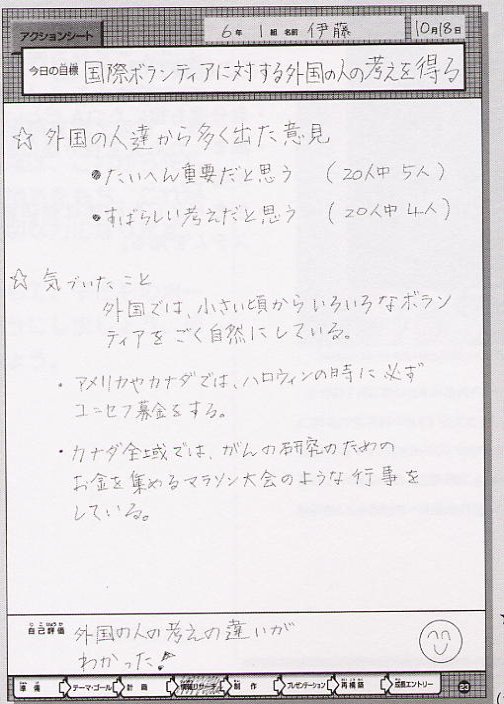 アクションシート
6年 1組 名前 伊藤 10月18日
今日の目標 国際ボランティアに対する外国の人の考えを得る
☆ 外国の人達から多く出た意見
・たいへん重要だと思う (20人中 5人)
・すばらしい考えだと思う (20人中 4人)
☆ 気づいたこと
外国では、小さい頃からいろいろなボラン
ティアをごく自然にしている。
・アメリカやカナダでは、ハロウィンの時に必ず
ユニセフ募金をする。
・カナダ全域では、がんの研究のための
お金を集めるマラソン大会のような行事を
している。
自己評価 外国の人の考えの違いが
わかった!
準備 テーマ・ゴール 計画 情報リサーチ 制作 プレゼンテーション 再構築 成長エントリー